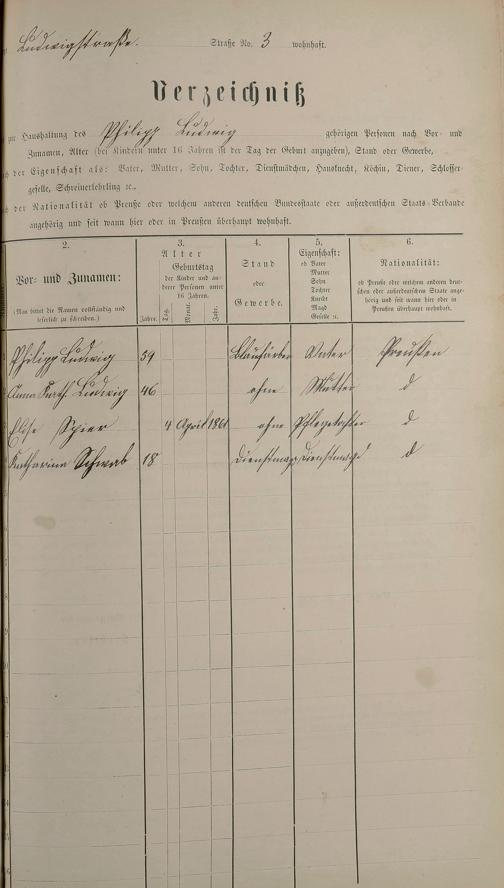 Ludwigstraße. Straße No. 3 wohnhaft.
Verzeichniß
zur Haushaltung des Philipp Ludwig gehörigen Personen nach Vor- und
Zunamen, Alter (bei Kindern unter 16 Jahren ist der Tag der Geburt anzugeben), Stand oder Gewerbe,
nach der Eigenschaft als: Vater, Mutter, Sohn, Tochter, Dienstmädchen, Hausknecht, Köchin, Diener, Schlosser-
geselle, Schreinerlehrling ꝛc.,
nach der Nationalität ob Preuße oder welchem anderen deutschen Bundesstaate oder außerdeutschen Staats-Verbande
angehörig und seit wann hier oder in Preußen überhaupt wohnhaft.
2. 3. 4. 5. 6.
Vor- und Zunamen:
(Man bittet die Namen vollständig und
leserlich zu schreiben.)
Alter
Geburtstag
der Kinder und an-
derer Personen unter
16 Jahren.
Jahre. Tag. Monat. Jahr.
Stand
oder
Gewerbe.
Eigenschaft:
ob Vater
Mutter
Sohn
Tochter
Knecht
Magd
Geselle ꝛc.
Nationalität:
ob Preuße oder welchem anderen deut-
schen oder außerdeutschen Staate ange-
hörig und seit wann hier oder in
Preußen überhaupt wohnhaft.
Philipp Ludwig 59 Blaufärber Vater Preußen
Anna Kath. Ludwig 46 ohne Mutter d
Elise Spier 4 April 1861 ohne Pflegetochter d
Katharina Schwab 18 Dienstmagd Dienstmagd d